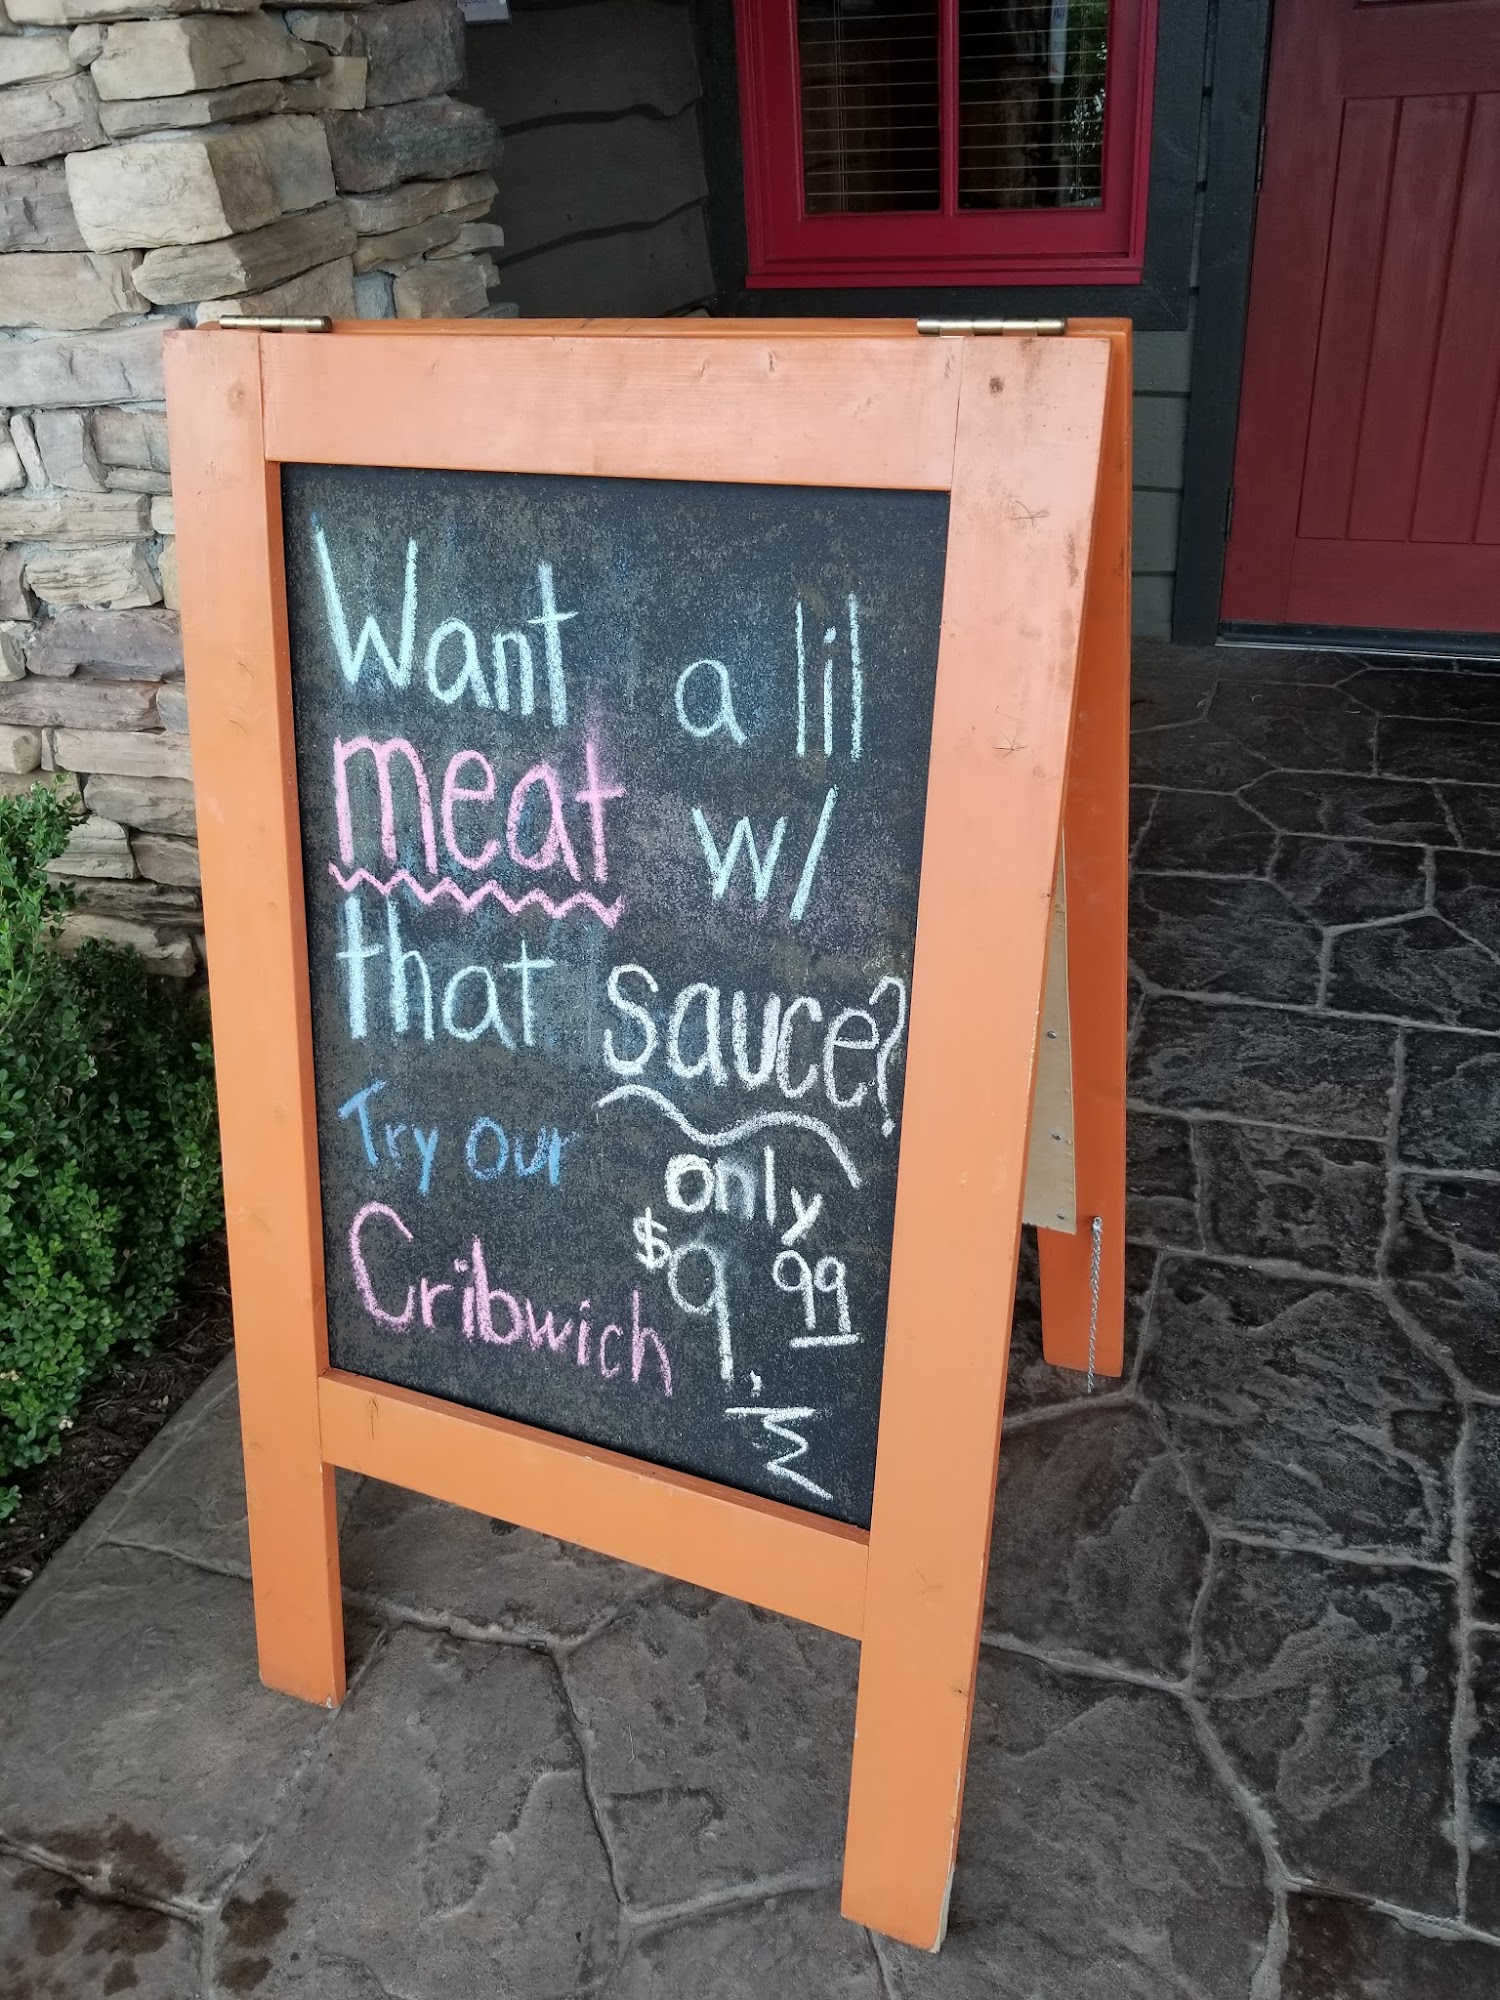 Want a lil
meat w/
that sauce?
Try our
Cribwich
only
$9.99